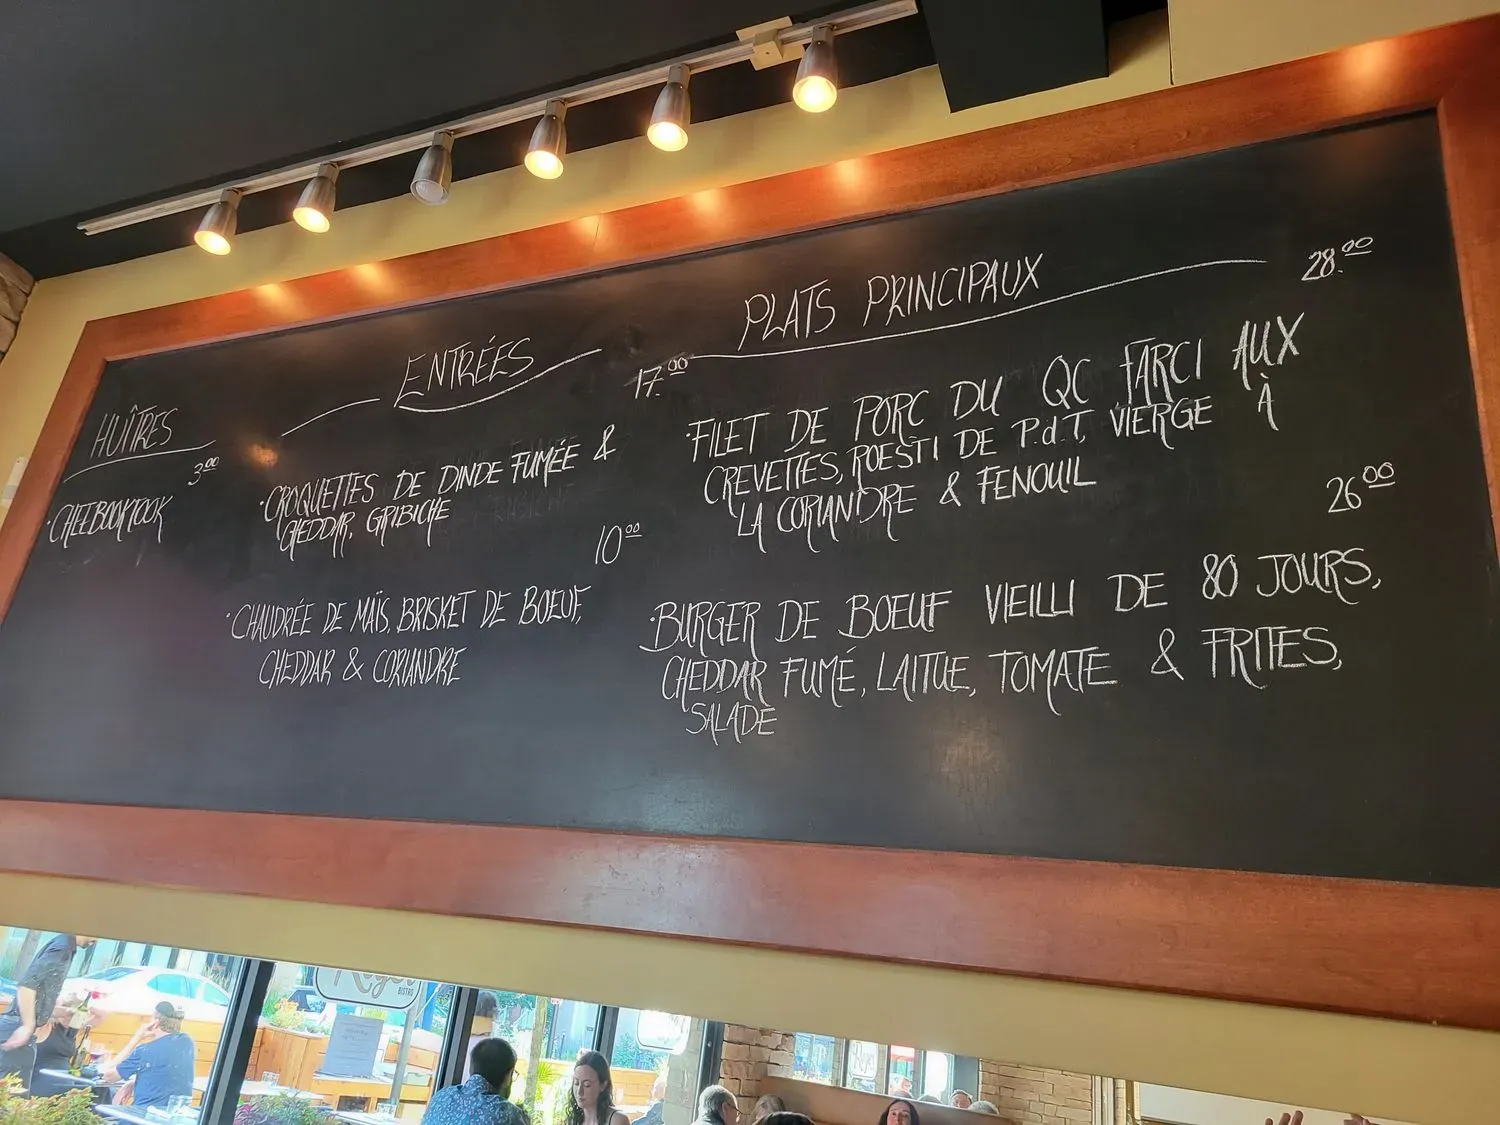 HUÎTRES
3.00
·CHEEBOOKTOOK
ENTRÉES
17.00
·CROQUETTES DE DINDE FUMÉE &
CHEDDAR, GRIBICHE
10.00
·CHAUDRÉE DE MAÏS, BRISKET DE BOEUF,
CHEDDAR & CORIANDRE
PLATS PRINCIPAUX
28.00
·FILET DE PORC DU QC FARCI AUX
CREVETTES, ROESTI DE P.d.T, VIERGE À
LA CORIANDRE & FENOUIL
26.00
·BURGER DE BOEUF VIEILLI DE 80 JOURS,
CHEDDAR FUMÉ, LAITUE, TOMATE & FRITES,
SALADE
BISTRO